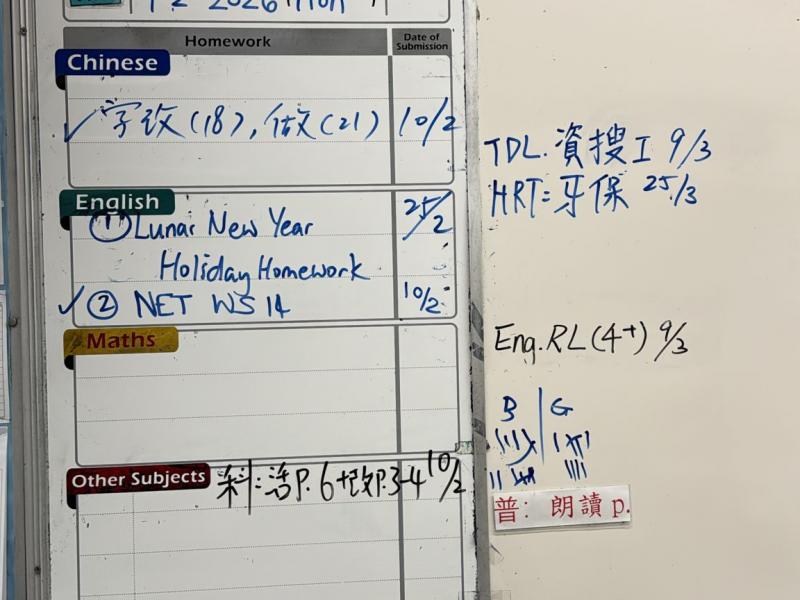 2026 Mon
Homework
Date of Submission
Chinese
✓ 字改(18), 做(21) 10/2
English
① Lunar New Year 25/2
Holiday Homework
✓ ② NET WS 14 10/2
Maths
Other Subjects
科: 活P.6+改P.3-4 10/2
TDL. 資搜I 9/3
HRT: 牙保 25/3
Eng. RL (4+) 9/3
B G
普: 朗讀 p.